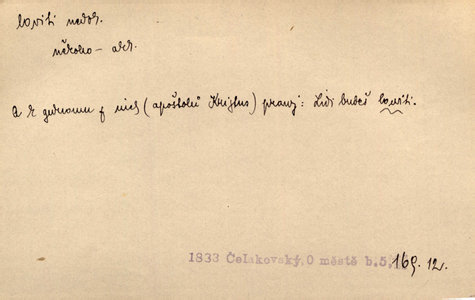 loviti nedok.
někoho – akk.
A k jednomu z nich (apoštolů Kristus) praví: Lidi budeš loviti.
1833 Čelakovský, O městě b.5, 169. 12.